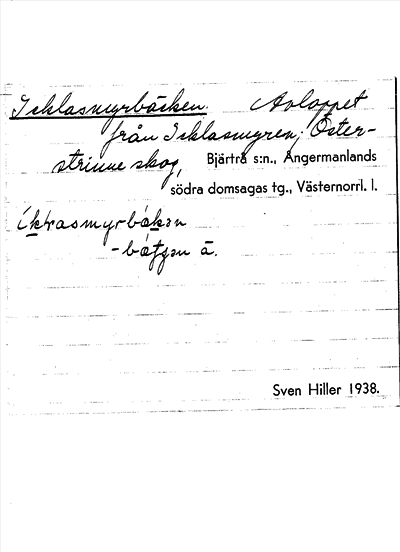 Icklasmyrbäcken. Avloppet
från Icklasmyren, Öster-
strinne skog, Bjärtrå s:n., Ångermanlands
södra domsagas tg., Västernorrl. l.
-bäckən ä.
Sven Hiller 1938.